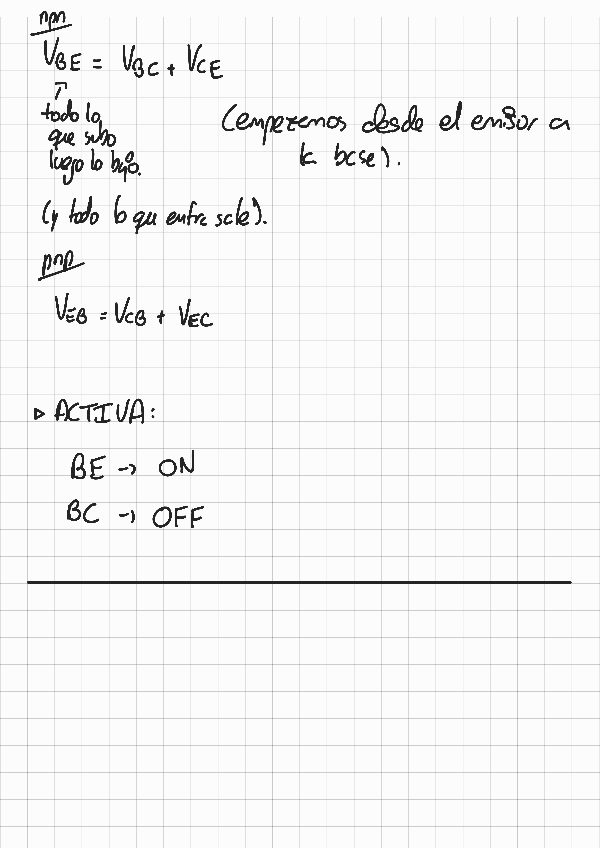 npn
V_BE = V_BC + V_CE
todo lo
que subo
luego lo bajo.
(empezamos desde el emisor a
la base).
(y todo lo que entra sale).
pnp
V_EB = V_CB + V_EC
▹ ACTIVA:
BE → ON
BC → OFF